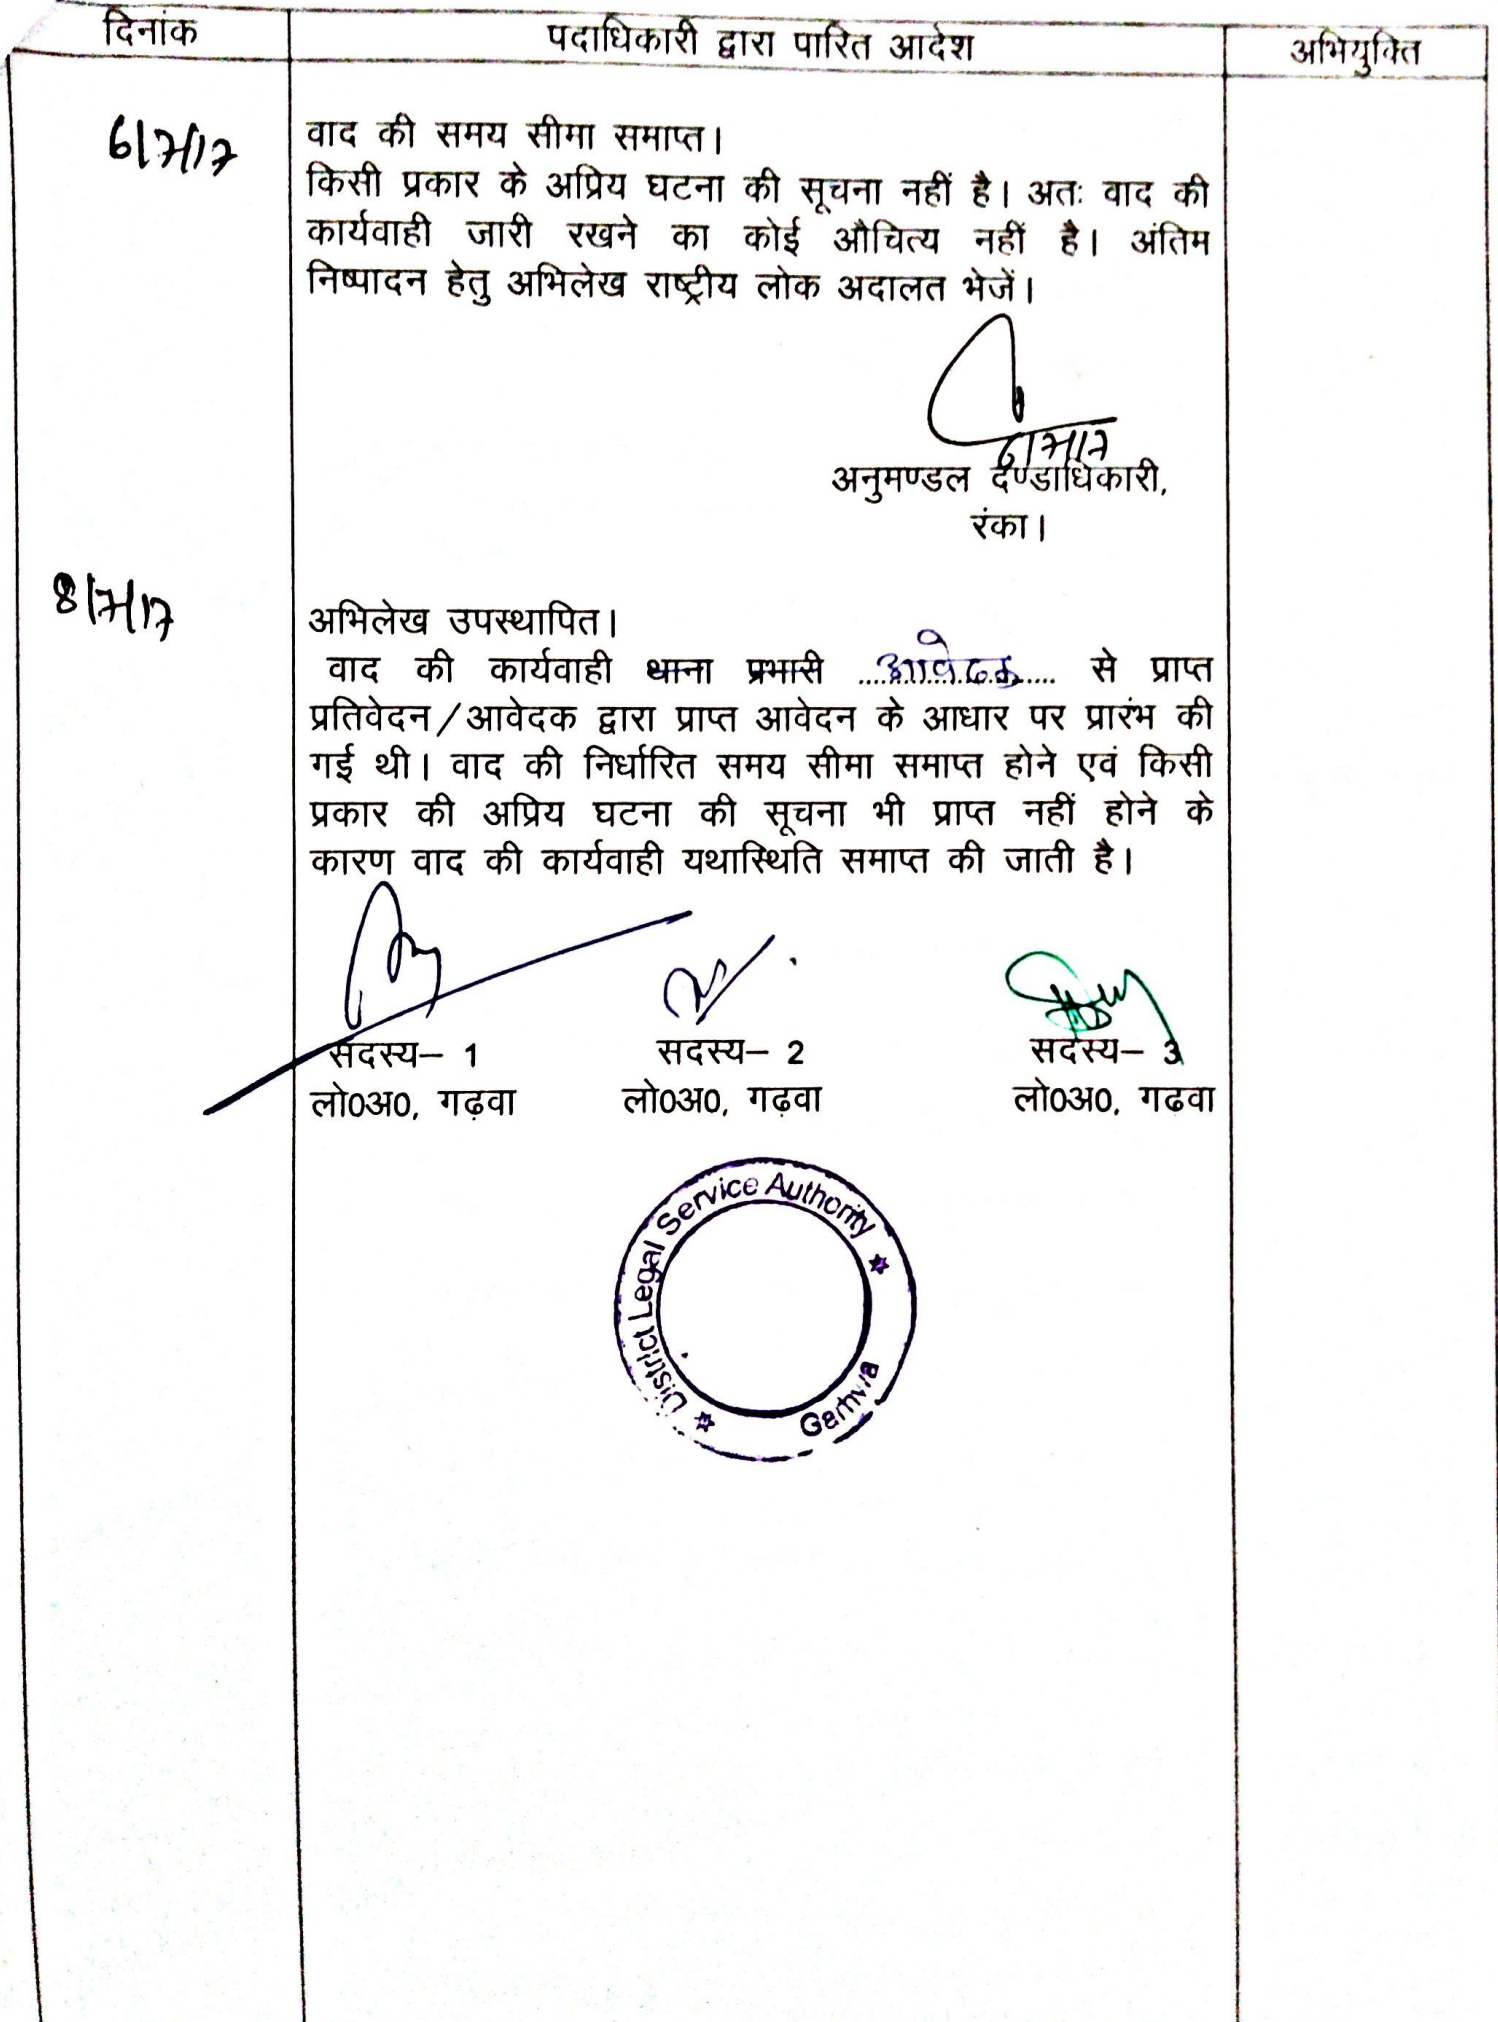 दिनांक पदाधिकारी द्वारा पारित आदेश अभियुक्ति
6/7/17 वाद की समय सीमा समाप्त।
किसी प्रकार के अप्रिय घटना की सूचना नहीं है। अतः वाद की
कार्यवाही जारी रखने का कोई औचित्य नहीं है। अंतिम
निष्पादन हेतु अभिलेख राष्ट्रीय लोक अदालत भेजें।
6/7/17
अनुमण्डल दण्डाधिकारी,
रंका।
8/7/17 अभिलेख उपस्थापित।
वाद की कार्यवाही थाना प्रभारी ...आवेदक... से प्राप्त
प्रतिवेदन/आवेदक द्वारा प्राप्त आवेदन के आधार पर प्रारंभ की
गई थी। वाद की निर्धारित समय सीमा समाप्त होने एवं किसी
प्रकार की अप्रिय घटना की सूचना भी प्राप्त नहीं होने के
कारण वाद की कार्यवाही यथास्थिति समाप्त की जाती है।
सदस्य– 1 सदस्य– 2 सदस्य– 3
लो0अ0, गढ़वा लो0अ0, गढ़वा लो0अ0, गढवा
District Legal Service Authority
Garhwa